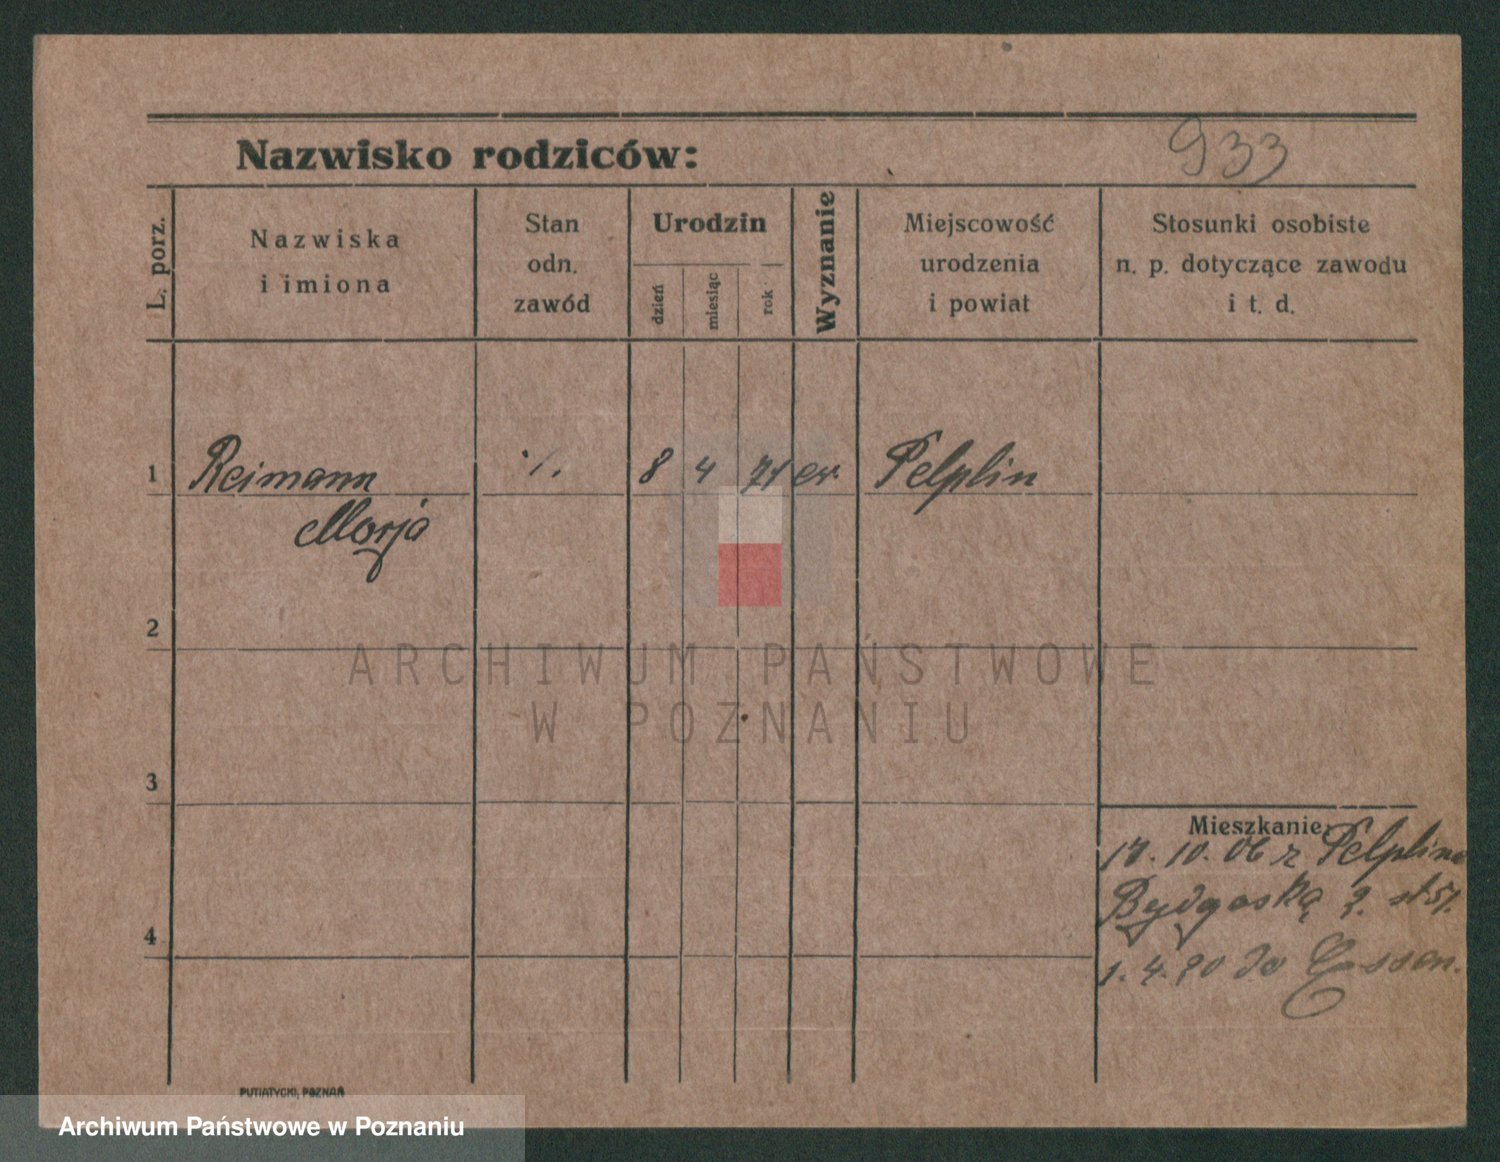 933
Nazwisko rodziców:
L. porz.
Nazwiska
i imiona
Stan
odn.
zawód
Urodzin
dzień
miesiąc
rok
Wyznanie
Miejscowość
urodzenia
i powiat
Stosunki osobiste
n. p. dotyczące zawodu
i t. d.
1 Reimann ·/. 8 4 71 ew. Pelplin
Marja
2
3
4
Mieszkanie:
17. 10. 06 z Pelplina
Bydgoska
1. 4. 20 do Essen.
PUTIATYCKI, POZNAŃ
ARCHIWUM PAŃSTWOWE
W POZNANIU
Archiwum Państwowe w Poznaniu